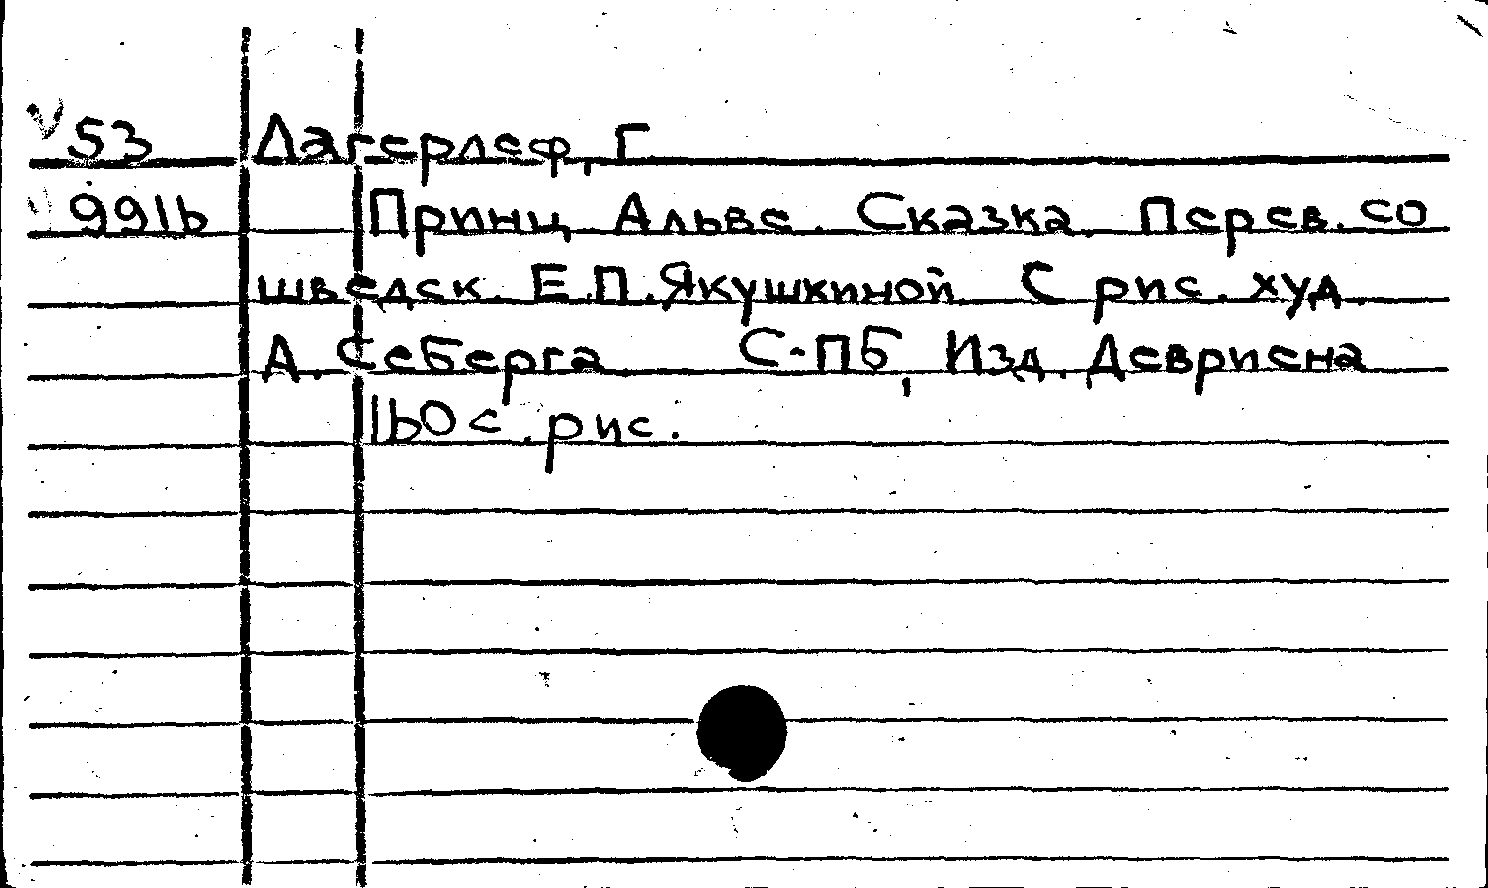 V 53 Лагерлеф, Г.
991b Принц Альве. Сказка. Перев. со
шведск. Е.П. Якушкиной. С рис. худ.
А. Себерга С-ПБ, Изд. Девриена
1b0 с. рис.